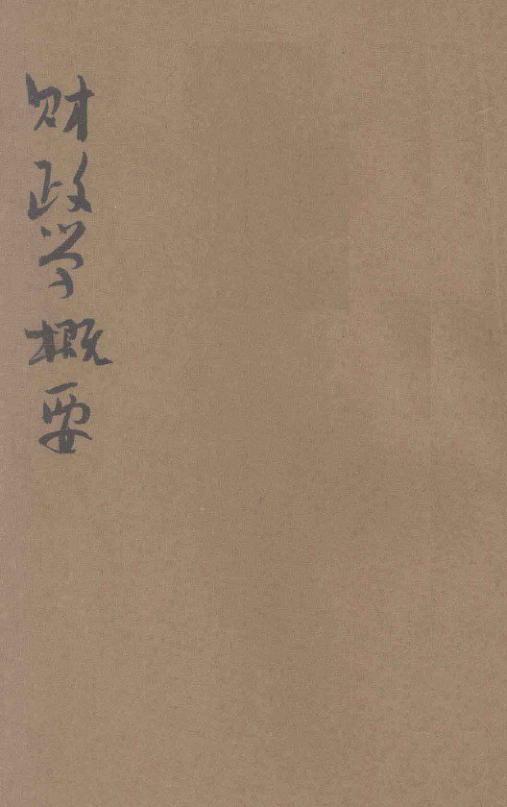 财政学概要